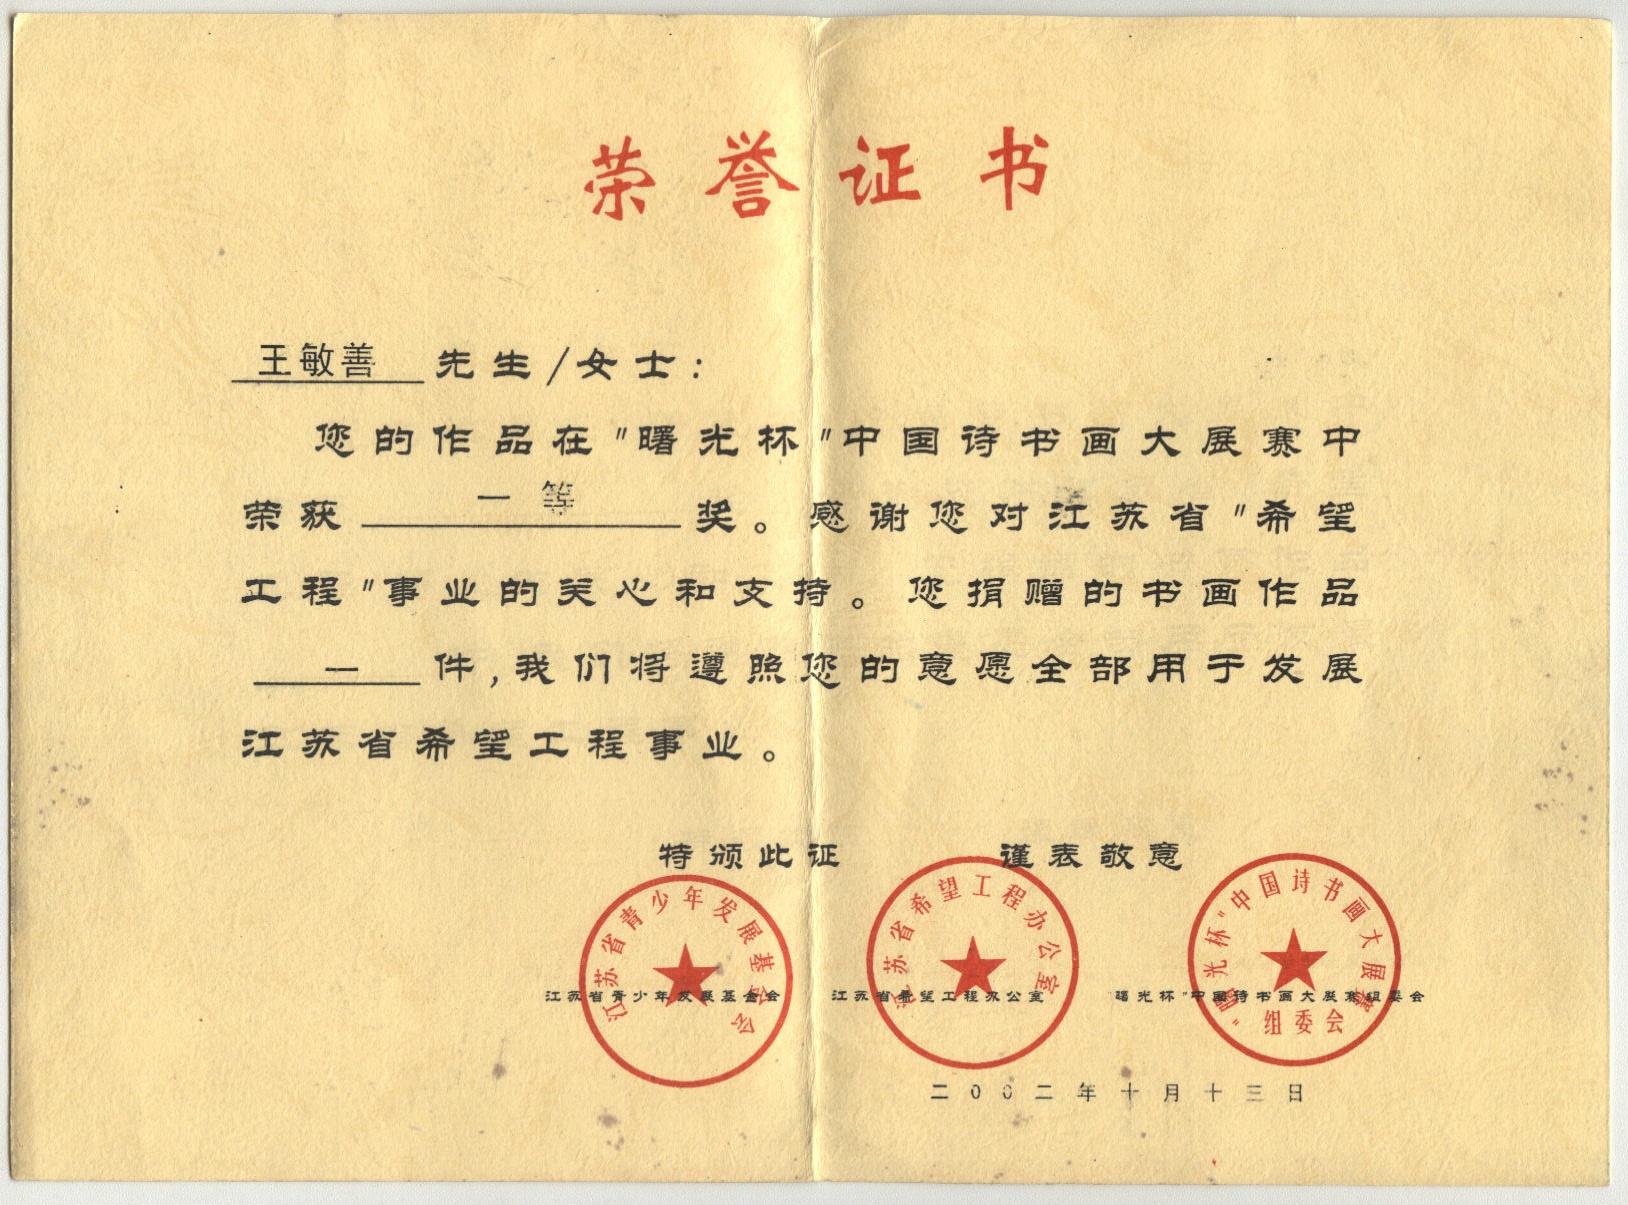 荣誉证书
王敏善 先生/女士:
您的作品在"曙光杯"中国诗书画大展赛中
荣获 一等 奖。感谢您对江苏省"希望
工程"事业的关心和支持。您捐赠的书画作品
一 件,我们将遵照您的意愿全部用于发展
江苏省希望工程事业。
特颁此证 谨表敬意
江苏省青少年发展基金会
江苏省希望工程办公室
"曙光杯"中国诗书画大展赛
组委会
江苏省青少年发展基金会 江苏省希望工程办公室 "曙光杯"中国诗书画大展赛组委会
二00二年十月十三日